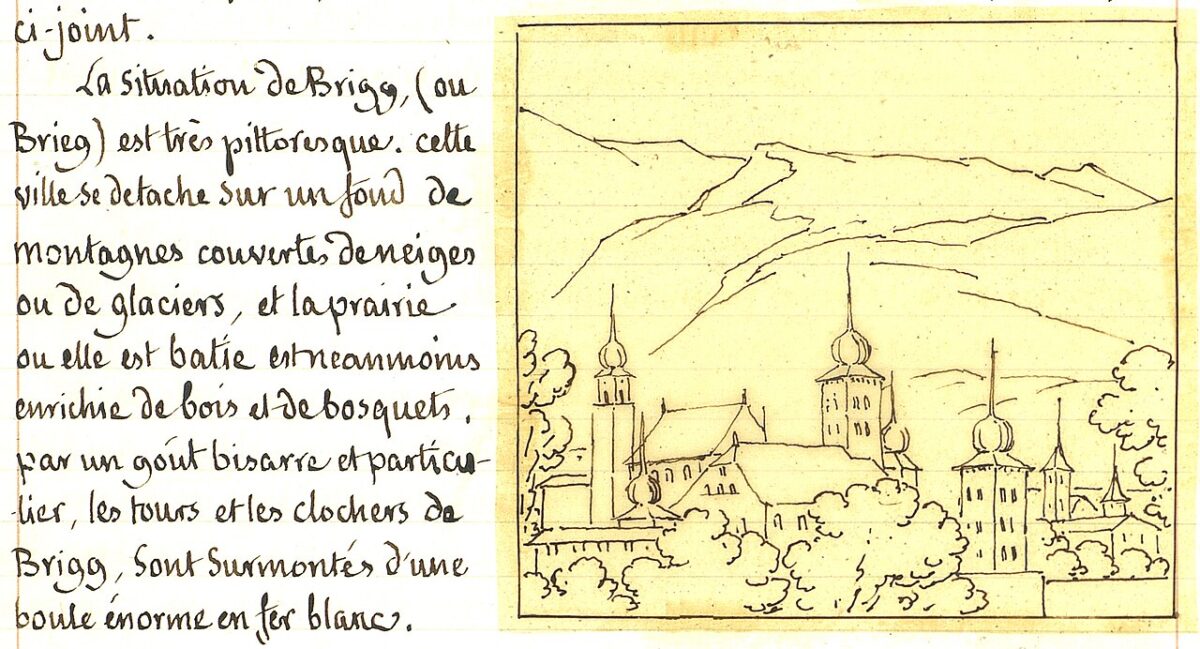 ci-joint.
La situation de Brigg, (ou
Brieg) est très pittoresque. cette
ville se detache sur un fond de
montagnes couvertes de neiges
ou de glaciers, et la prairie
ou elle est batie est neanmoins
enrichie de bois et de bosquets.
par un goút bisarre et particu-
lier, les tours et les clochers de
Brigg, sont surmontés d'une
boule énorme en fer blanc.